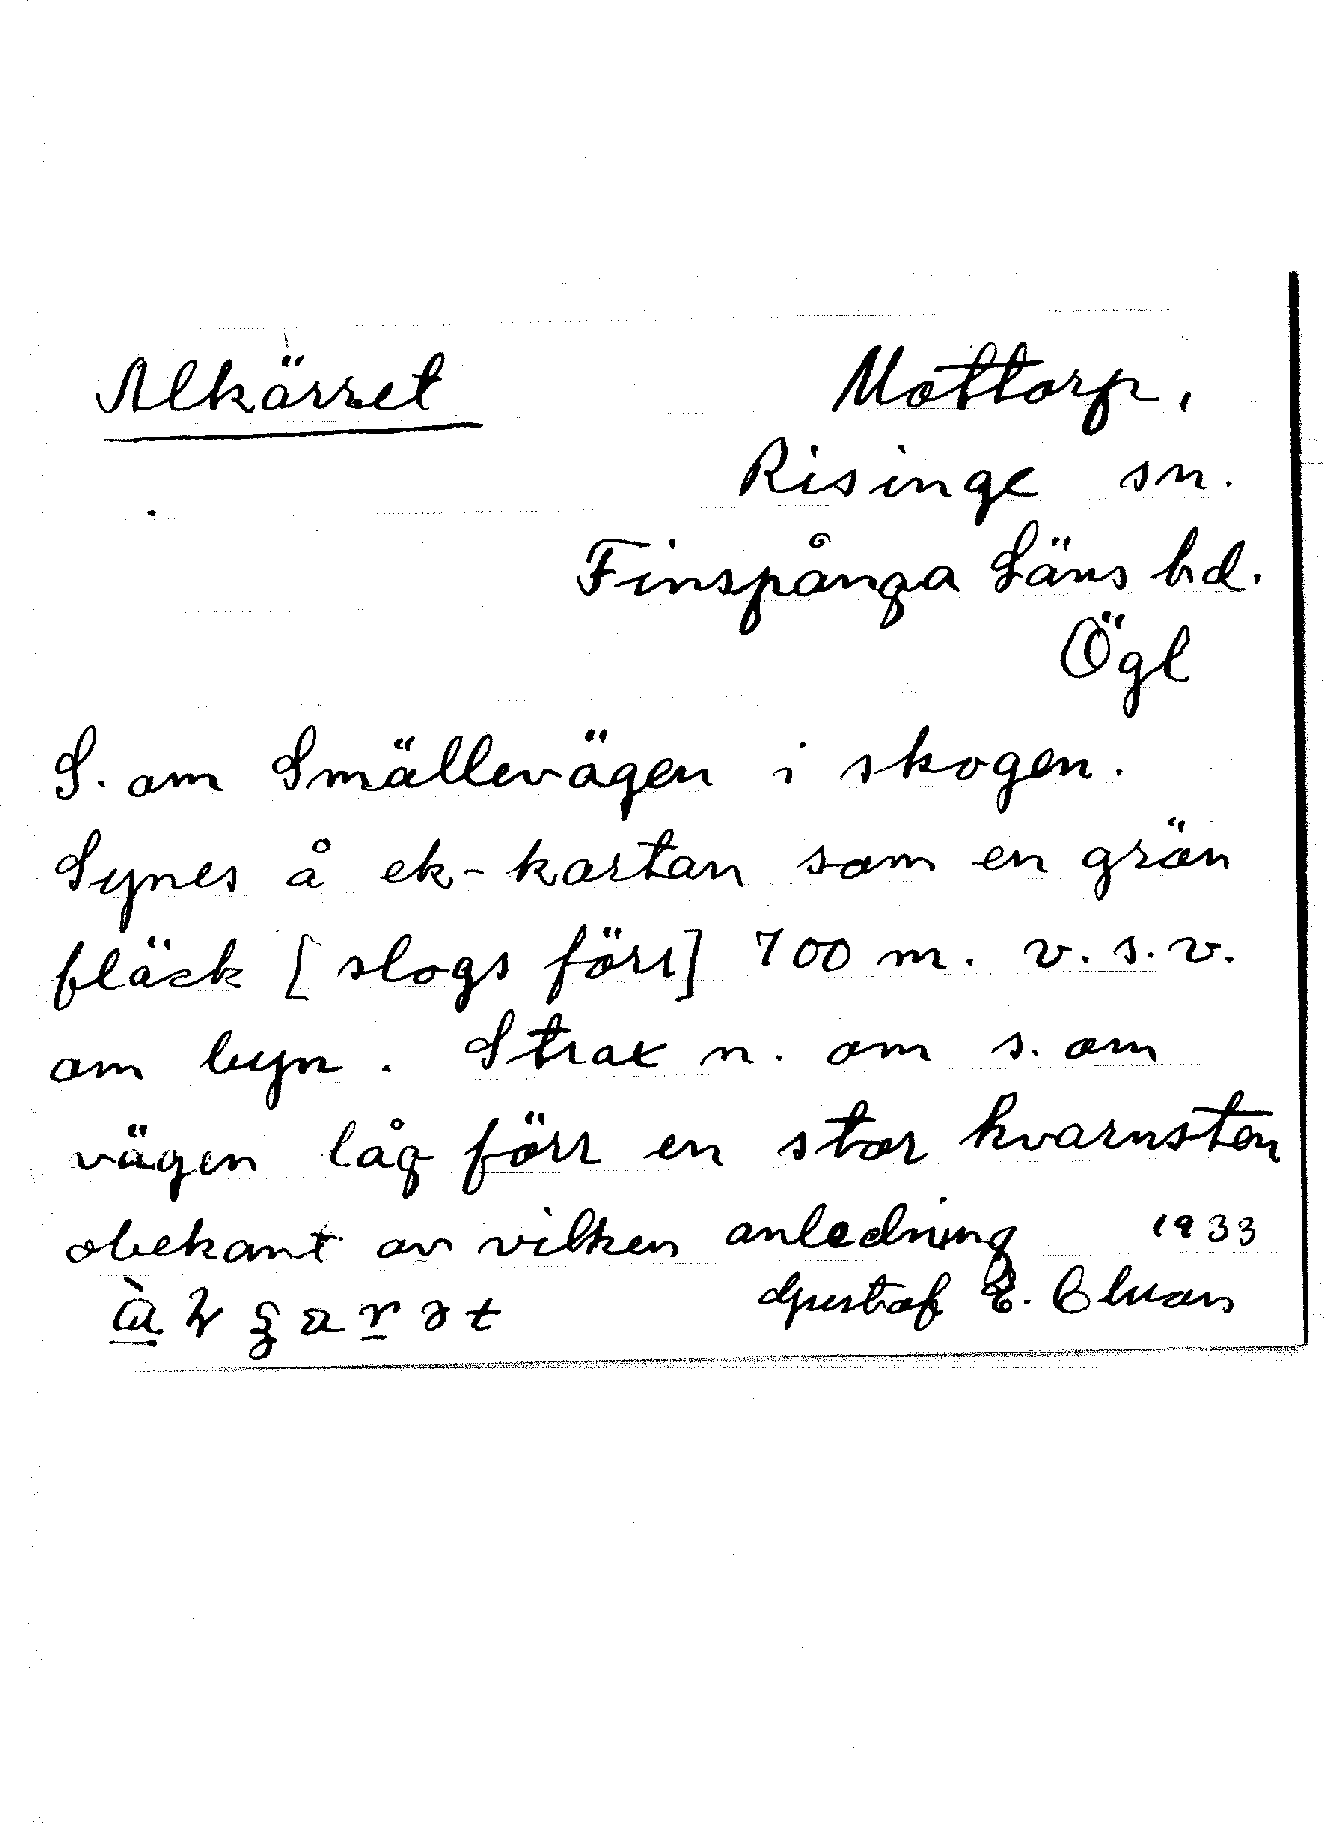 Alkärret
Mottorp,
Risinge sn.
Finspånga Läns hd.
Ögl
S. om Smällevägen i skogen.
Synes å ek-kartan som en grön
fläck [slogs förr] 700 m. v.s.v.
om byn. Strax n. om s. om
vägen låg förr en stor kvarnsten
obekant av vilken anledning 1933
Gustaf E.